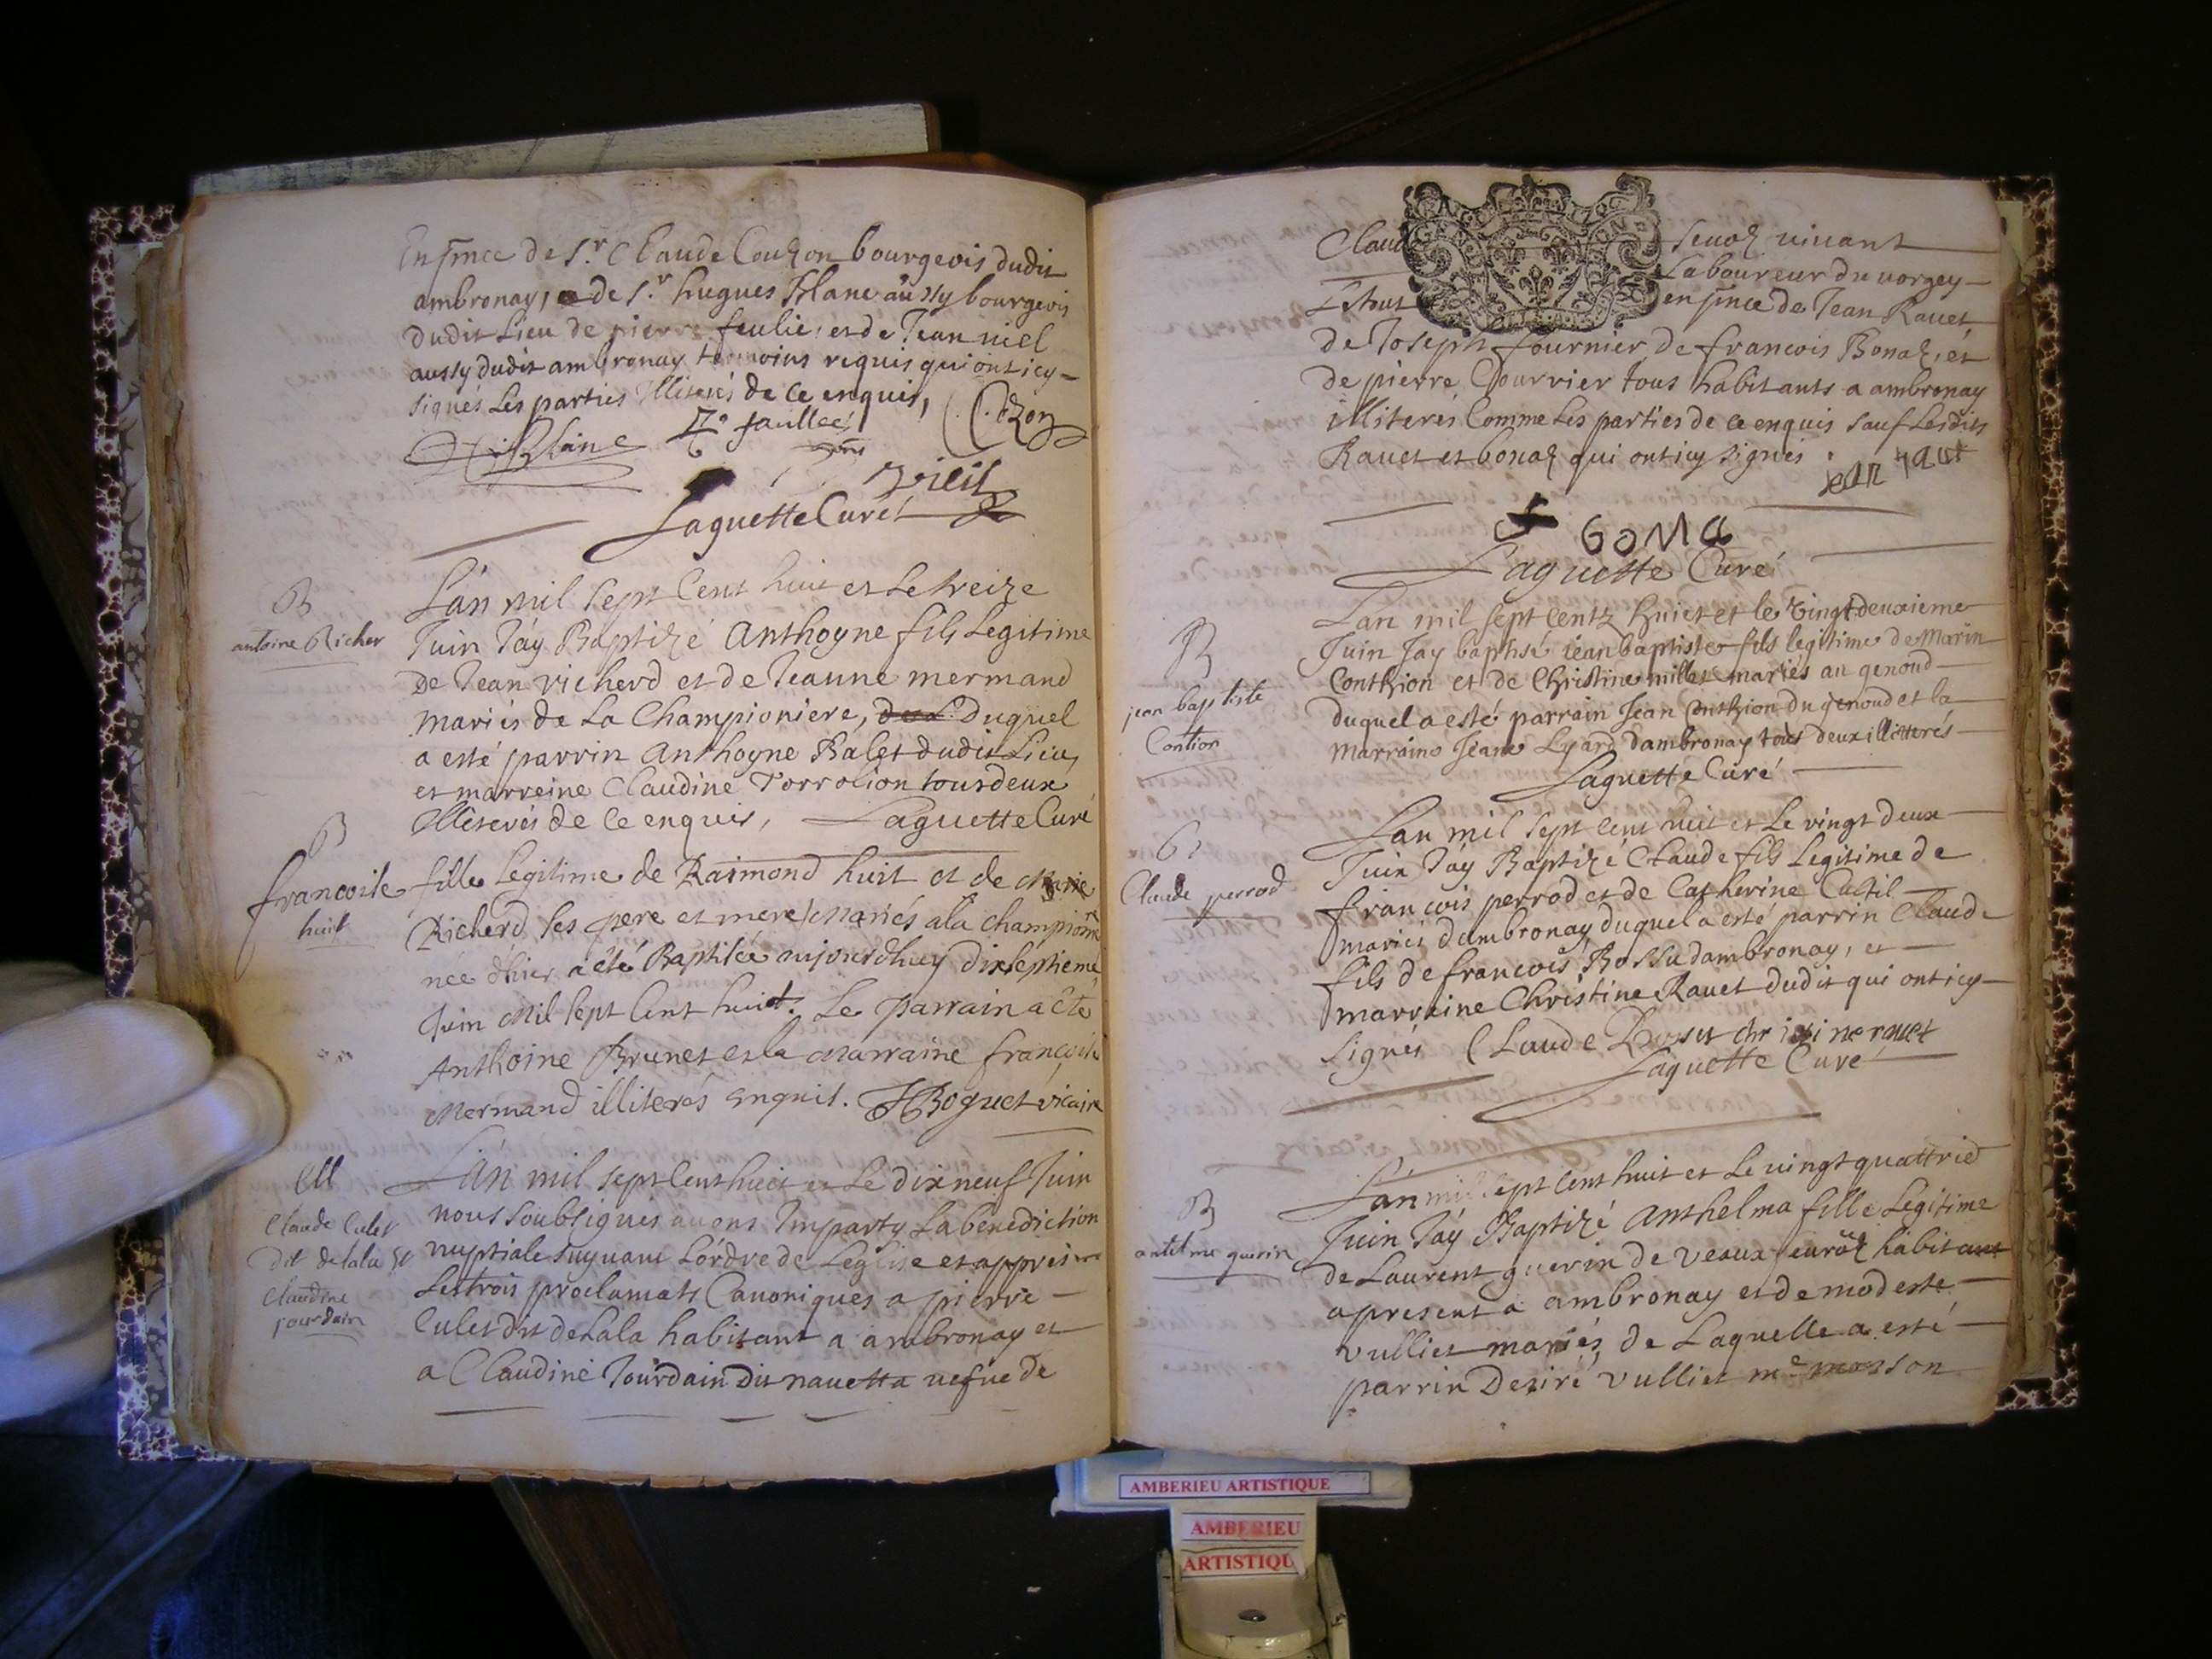 En pnce de Sr. Claude Couzon bourgeois dudit
ambronay, e de Sr. hugues Blanc aussy bourgeois
dudit Lieu de pierre feulie, et de Jean niel
aussy dudit ambronay temoins requis qui ont icy
signés Les parties Illiterés de ce enquis,
H. Blanc
Laguette Curé
B
antoine Richer
L'an mil sept Cent huit et Le treize
Juin J'ay Baptizé Anthoyne fils Legitime
De Jean richerd et de Jeanne mermand
mariés de La Championiere, Duquel
a esté parrin Anthoyne Balet dudit Lieu,
et marreine Claudine Torrolion tous deux
Illiterés de ce enquis, Laguette Curé
B
francoise
huit
fille Legitime de Raimond huit et de Marie
Richerd ses pere et mere mariés a la Champione
née d'hier a été Baptisée aujourdhuy dixseptieme
Juin Mil sept Cent huit. Le parrain a été
Anthoine Brunet et la Marraine françoise
Mermand illiterés enquis. Boguet vicaire
M
Claude Culet
Dit de lala et
Claudine
jourdain
L'An mil sept Cent huit et Le dixneuf Juin
nous soubsignés avons Imparty La benediction
nuptiale suyvant L'ordre de Leglise et appres
Les trois proclamats Canoniques a pierre
Culet dit de Lala habitant a ambronay et
a Claudine Jourdain Dit navetta vefue de
Claud vivant
Laboureur du vorgey
en pnce de Jean Ravet
de Joseph fournier de francois Bonaz, et
de pierre Courrier tous habitants a ambronay
illiterés Comme Les parties de ce enquis sauf Lesdits
Ravet et bonaz qui ont icy signés.
Laguette Curé
B
jean baptiste
Contion
Lan mil sept centz huict et le vingt deuxieme
Juin Jay baptisé jean baptiste fils legitime de Marin
Conthion et de Christine millet mariés au genoud
duquel a esté parrain Jean Conthion du genoud et la
marraine Jeane Lyard dambronay tous deux illitterés
Laguette Curé
B
Claude perrod
Lan mil sept cent huit et Le vingt deux
Juin J'ay Baptizé Claude fils Legitime de
francois perrod et de Catherine Cultil
mariés dambronay duquel a esté parrin Claude
fils de francois Bossu dambronay, et
marraine Christine Ravet dudit qui ont icy
signés Claude Bossu
Laguette Curé
B
antelme guerin
L'an mil sept Cent huit et Le vingt quattrie
Juin J'ay Baptizé Anthelma fille Legitime
de Laurent guerin de veaux habitant
apresent a ambronay et de modeste
vulliet mariés, de Laquelle a esté
parrin Deziré vulliet me masson
AMBERIEU ARTISTIQUE
AMBERIEU
ARTISTIQU